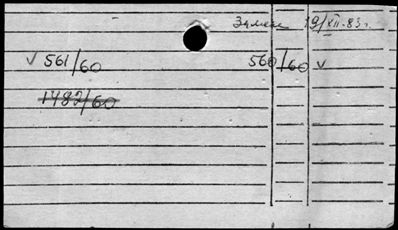 Замен 19/XII-83г.
✓ 561/60 560/60 ✓
1482/60